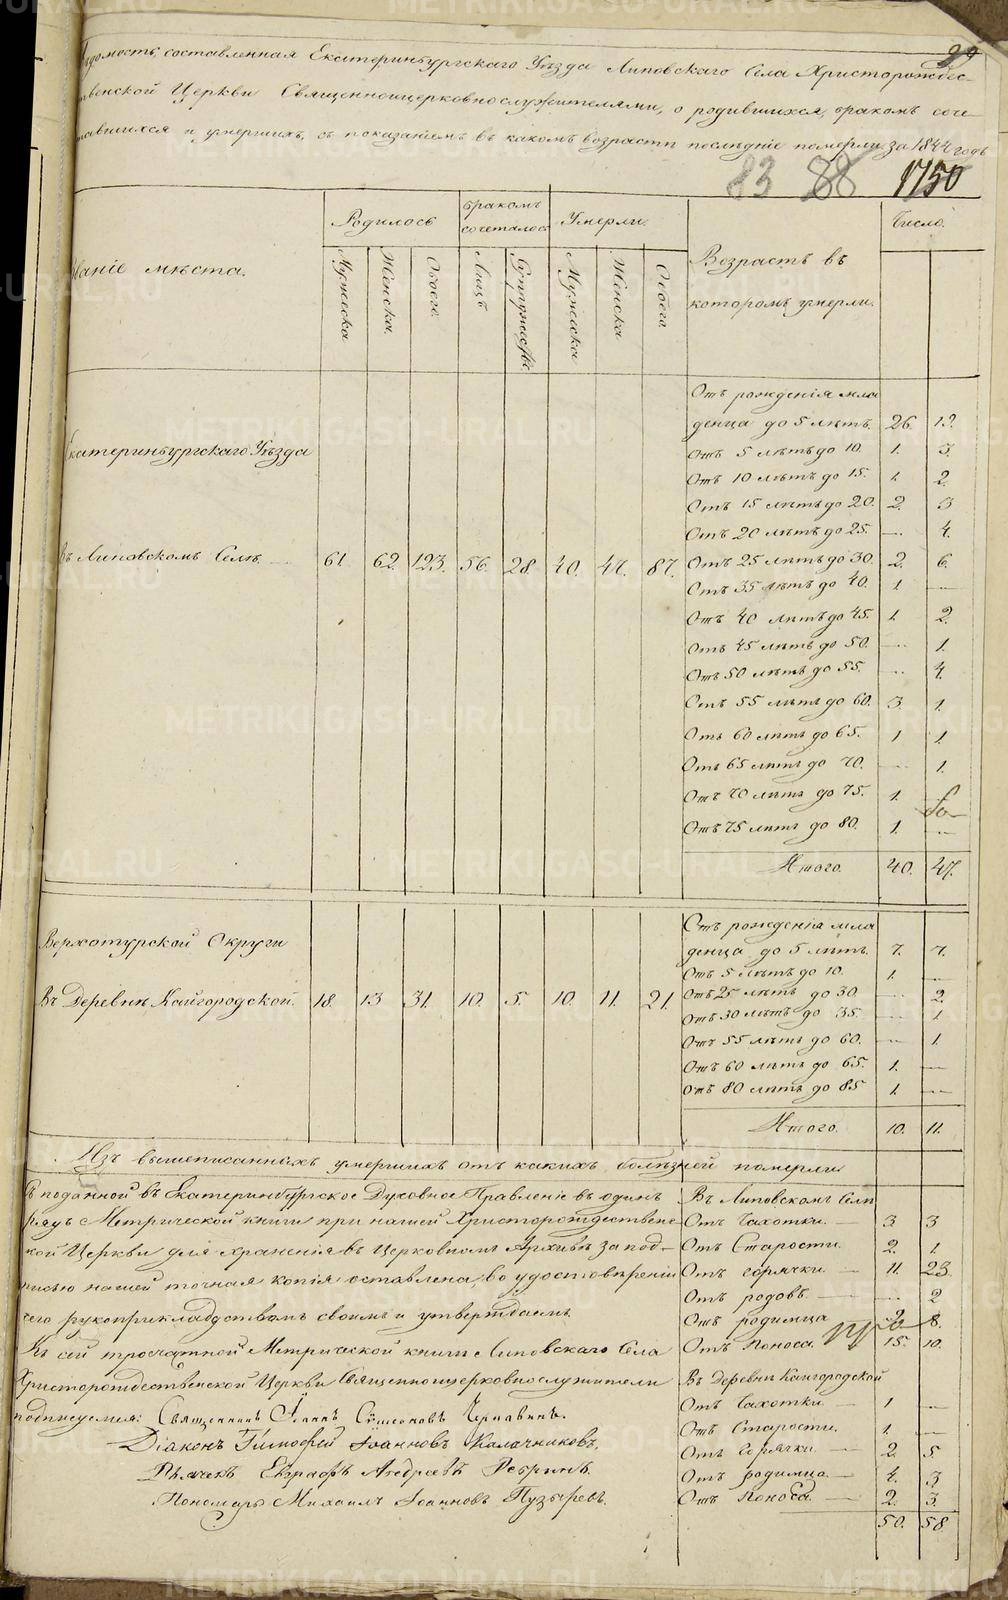 составленная Екатеринбургскаго Уѣзда Липовскаго Села Христорождес-
твенской Церкви Священноицерковнослужителями, о родившихся, бракомъ соче-
тавшихся и умершихъ, съ показаніемъ въ какомъ возрасти послѣдніе померли за 1844 годъ
83 88 1750
Званіе мѣста.
Родилось
бракомъ сочеталось
Умерли.
Возрастъ въ которомъ умерли.
Число.
Мужеска
Женска.
Обоего.
Лицъ
Супружествъ
Мужеска
Женска
Обоего.
Екатеринбургскаго Уѣзда
Въ Липовскомъ Селѣ. 61. 62. 123. 56. 28. 40. 47. 87.
Отъ рожденія мла
денца до 5 лѣтъ. 26. 19.
Отъ 5 лѣтъ до 10. 1. 3.
Отъ 10 лѣтъ до 15. 1. 2.
Отъ 15 лѣтъ до 20. 2. 3
Отъ 20 лѣтъ до 25. — 4.
Отъ 25 лѣтъ до 30. 2. 6.
Отъ 35 лѣтъ до 40. 1. —
Отъ 40 лѣтъ до 45. 1. 2.
Отъ 45 лѣтъ до 50. — 1.
Отъ 50 лѣтъ до 55. — 4.
Отъ 55 лѣтъ до 60. 3. 1.
Отъ 60 лѣтъ до 65. 1 1.
Отъ 65 лѣтъ до 70. — 1.
Отъ 70 лѣтъ до 75. 1. —
Отъ 75 лѣтъ до 80. 1. —
Итого. 40. 47.
Верхотурской Округи
Въ Деревнѣ Кайгородской. 18. 13 31. 10. 5. 10. 11. 21.
Отъ рожденія мла
денца до 5 лѣтъ. 7. 7.
Отъ 5 лѣтъ до 10. 1. —
Отъ 25 лѣтъ до 30. — 2.
Отъ 30 лѣтъ до 35. — 1.
Отъ 55 лѣтъ до 60. — 1.
Отъ 60 лѣтъ до 65. 1. —
Отъ 80 лѣтъ до 85 1. —
Итого. 10. 11.
Изъ вышеписанныхъ умершихъ отъ какихъ болѣзней померли
Въ поданной въ Екатеринбургское Духовное Правленіе въ одинъ
рядъ Метрической книги при нашей Христорождествен-
кой Церкви для храненія въ Церковномъ Архивѣ за под-
писью нашей точная копія оставлена, во удостовѣреніи
чего рукоприкладствомъ своимъ и утверждаемъ.
Къ сей тросчатной Метрической книги Липовскаго Села
Христорождественской Церкви Священноицерковнослужители
подписуемся: Священникъ Іоаннъ Сѵмеоновъ Чернавинъ.
Діаконъ Тимофей Іоанновъ Калачниковъ,
Дьячекъ Евграфъ Андреевъ Ребринъ.
Пономарь Михаилъ Іоанновъ Пузыревъ.
Въ Липовскомъ Селѣ
Отъ Чахотки. — 3 3
Отъ Старости. 2. 1.
Отъ горячки. — 11. 23.
Отъ родовъ. — — 2
Отъ родимца 8.
Отъ Поноса. 15. 10.
Въ Деревнѣ Кайгородской
Отъ Чахотки. — 1 —
Отъ Старости. 1. —
Отъ Горячки. — 2. 5.
Отъ родимца. — 4. 3
Отъ Поноса. — 2. 3.
50. 58.
METRIKI.GASO-URAL.RU